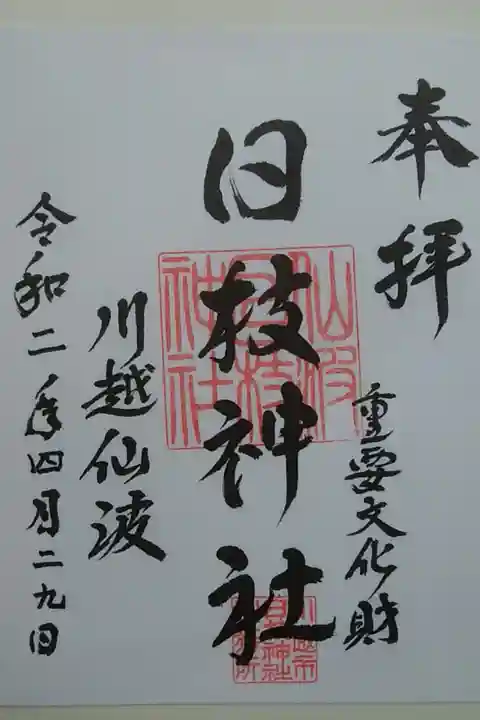 奉拝
重要文化財
日枝神社
川越仙波
令和二年四月二九日
仙波
日枝
神社